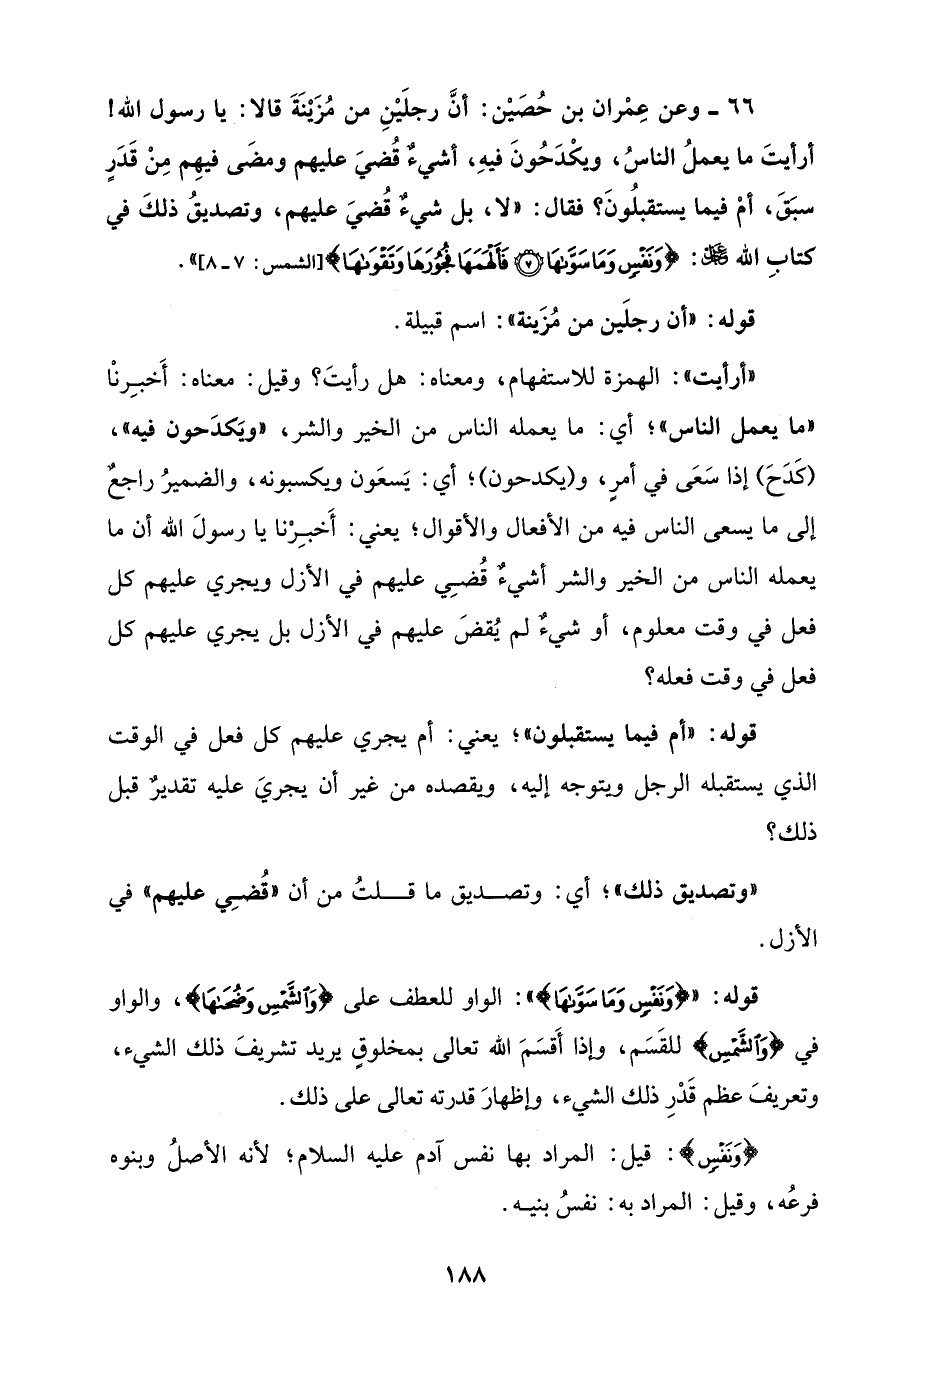 ٦٦ ـ وعن عِمْران بن حُصَيْن: أنَّ رجلَيْنِ من مُزَيْنَةَ قالا: يا رسول الله!
أرأيتَ ما يعملُ الناسُ، ويكْدَحُونَ فيهِ، أشيءٌ قُضيَ عليهم ومضَى فيهِم مِنْ قَدَرٍ
سبَقَ، أمْ فيما يستقبلُونَ؟ فقال: «لا، بل شيءٌ قُضيَ عليهم، وتصديقُ ذلكَ في
كتابِ الله ﷺ: ﴿وَنَفْسٍ وَمَا سَوَّىٰهَا ٧ فَأَلْهَمَهَا فُجُورَهَا وَتَقْوَىٰهَا﴾[الشمس: ٧ ـ ٨]».
قوله: «أن رجلَين من مُزَينة»: اسم قبيلة.
«أرأيت»: الهمزة للاستفهام، ومعناه: هل رأيتَ؟ وقيل: معناه: أَخبِرنْا
«ما يعمل الناس»؛ أي: ما يعمله الناس من الخير والشر، «ويَكدَحون فيه»،
(كَدَحَ) إذا سَعَى في أمرٍ، و(يكدحون)؛ أي: يَسعَون ويكسبونه، والضميرُ راجعٌ
إلى ما يسعى الناس فيه من الأفعال والأقوال؛ يعني: أَخبِرْنا يا رسولَ الله أن ما
يعمله الناس من الخير والشر أشيءٌ قُضـِي عليهم في الأزل ويجري عليهم كل
فعل في وقت معلوم، أو شيءٌ لم يُقضَ عليهم في الأزل بل يجري عليهم كل
فعل في وقت فعله؟
قوله: «أم فيما يستقبلون»؛ يعني: أم يجري عليهم كل فعل في الوقت
الذي يستقبله الرجل ويتوجه إليه، ويقصده من غير أن يجريَ عليه تقديرٌ قبل
ذلك؟
«وتصديق ذلك»؛ أي: وتصـــديق ما قـــلتُ من أن «قُضـِي عليهم» في
الأزل.
قوله: «﴿وَنَفْسٍ وَمَا سَوَّىٰهَا﴾»: الواو للعطف على ﴿وَٱلشَّمْسِ وَضُحَىٰهَا﴾، والواو
في ﴿وَٱلشَّمْسِ﴾ للقَسَم، وإذا أَقسَمَ الله تعالى بمخلوقٍ يريد تشريفَ ذلك الشيء،
وتعريفَ عظم قَدْرِ ذلك الشيء، وإظهارَ قدرته تعالى على ذلك.
﴿وَنَفْسٍ﴾: قيل: المراد بها نفس آدم عليه السلام؛ لأنه الأصلُ وبنوه
فرعُه، وقيل: المراد به: نفسُ بنيـه.
١٨٨